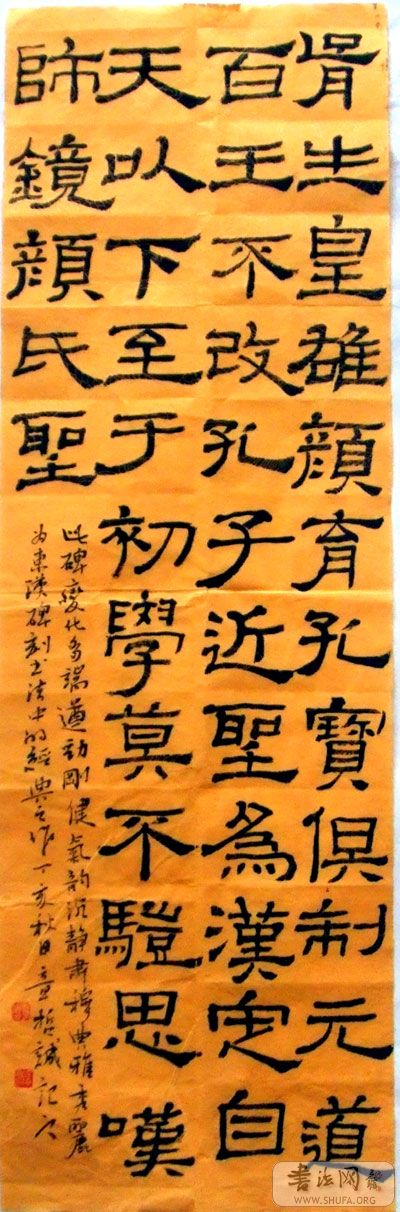 胥生皇雄顔育孔寶俱制元道
百王不改孔子近聖為漢定自
天以下至于初學莫不驥思嘆
師鏡顔氏聖
此碑變化多端遒勁剛健氣韵沉靜肅穆典雅秀麗
為東漢碑刻书法中的經典之作丁亥秋日童哲誠記之
書法网
WWW.SHUFA.ORG